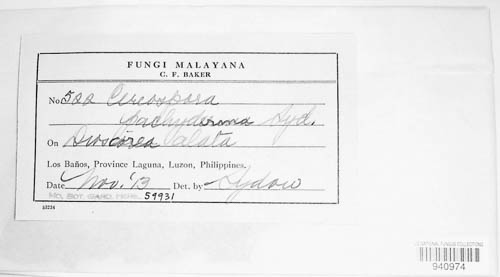 FUNGI MALAYANA
C. F. BAKER
No. 500 Cercospora
pachyderma Syd.
On Dioscorea alata
Los Baños, Province Laguna, Luzon, Philippines.
Date Nov. '13 Det. by Sydow
MO. BOT. GARD. HERB. 59931
23224
US NATIONAL FUNGUS COLLECTIONS
940974